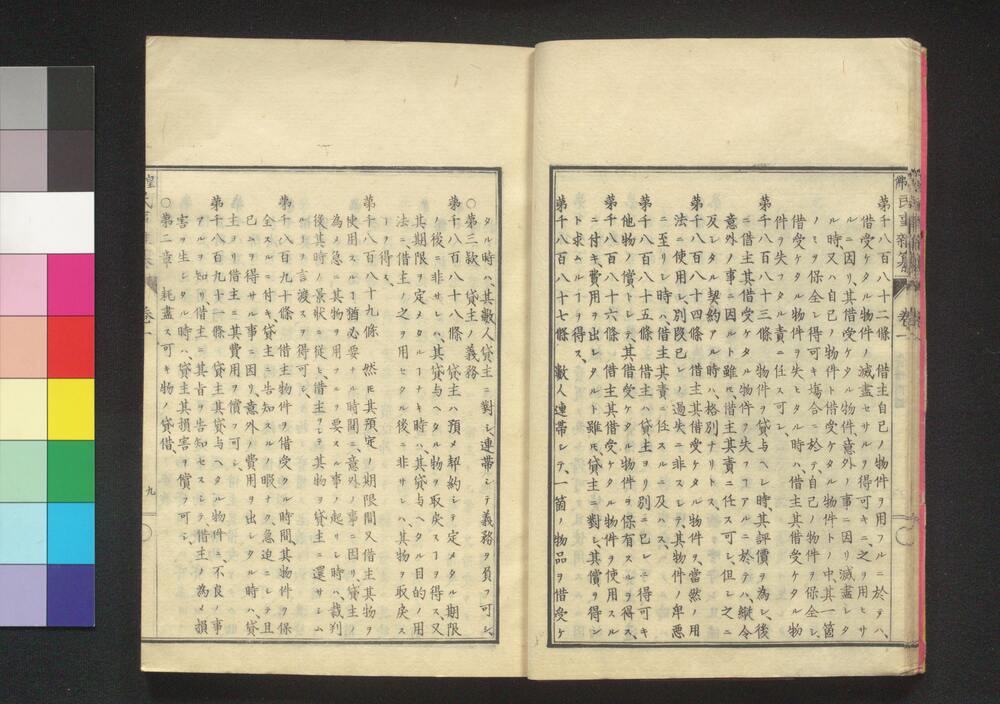 第千八百八十二條 借主自己ノ物件ヲ用フルニ於テハ、
借受ケタル物件ノ滅盡セサルヲ得可キニ、之ヲ用ヒサ
ルニ因リ、其借受ケタル物件意外ノ事ニ因リ滅盡レタ
ル時、又ハ自己ノ物件ト借受ケタル物件トノ中、其一箇
ノミヲ保全シ得可キ塲合ニ於テ、自己ノ物件ヲ保全シ、
借受ケタル物件ヲ失ヒタル時ハ、借主其借受ケタル物
件ヲ失フタル責ニ任ス可シ、
第千八百八十三條 物件ヲ貸与ヘシ時、其評價ヲ為シ、後
ニ借主其借受ケタル物件ヲ失フヿアルニ於テハ、縱令
意外ノ事ニ因ルト雖𪜈、借主其責ニ任ス可シ、但シ之ニ
反シタル契約アル時ハ、格別ナリトス、
第千八百八十四條 借主其借受ケタル物件ヲ、當然ノ用
法ニ使用シ、別段己レノ過失ニ非スシテ、其物件ノ卑悪
ニ至リシ時ハ、借主其責ニ任スルニ及ハス、
第千八百八十五條 借主ハ貸主ヨリ別ニ己レニ得可キ
他物ノ償トシテ、其借受ケタル物件ヲ保有スルヲ得ス、
第千八百八十六條 借主其借受ケタル物件ヲ使用スル
ニ付キ費用ヲ出シタルト雖𪜈、貸主ニ對シ、其償ヲ得ン
ト求ムルヿヲ得ス、
第千八百八十七條 數人連帯シテ、一箇ノ物品ヲ借受ケ
タル時ハ、其數人貸主ニ對シ、連帯シテ義務ヲ負フ可シ、
○第三款 貸主ノ義務
第千八百八十八條 貸主ハ預メ契約シテ定メタル期限
ノ後ニ非サレハ、其貸与ヘタル物ヲ取戻スヿヲ得ス、又
其期限ヲ定メタルヿナキ時ハ、其貸与ヘタル目的ノ用
法ニ借主ノ之ヲ用ヒタル後ニ非サレハ、其物ヲ取戻ス
ヿヲ得ス、
第千八百八十九條 然𪜈其預定ノ期限間又借主其物ヲ
使用スルヿノ猶必要ナル時間ニ、意外ノ事ニ因リ、貸主ノ
為メ急ニ其物ヲ用フルヲ要スル事ノ起リシ時ハ、裁判
役其時ノ景状ニ従ヒ、借主ヲシテ其物ヲ貸主ニ還サシム
ルヿヲ言渡スヿヲ得可シ、
第千八百九十條 借主物件ヲ借受クル時間其物件ヲ保
全スルニ付キ、貸主ニ告知スルノ暇ナク、急迫ニシテ且
已ムヲ得サル事ニ因リ、意外ノ費用ヲ出シタル時ハ、貸
主ヨリ借主ニ其費用ヲ償フ可シ、
第千八百九十一條 貸主其貸与ヘタル物件ニ、不良ノ事
アルヲ知リ、借主ニ其旨ヲ告知セスシテ、借主ノ為メ損
害ヲ生シタル時ハ、貸主其損害ヲ償フ可シ、
○第二章 耗盡ス可キ物ノ貸借、
九